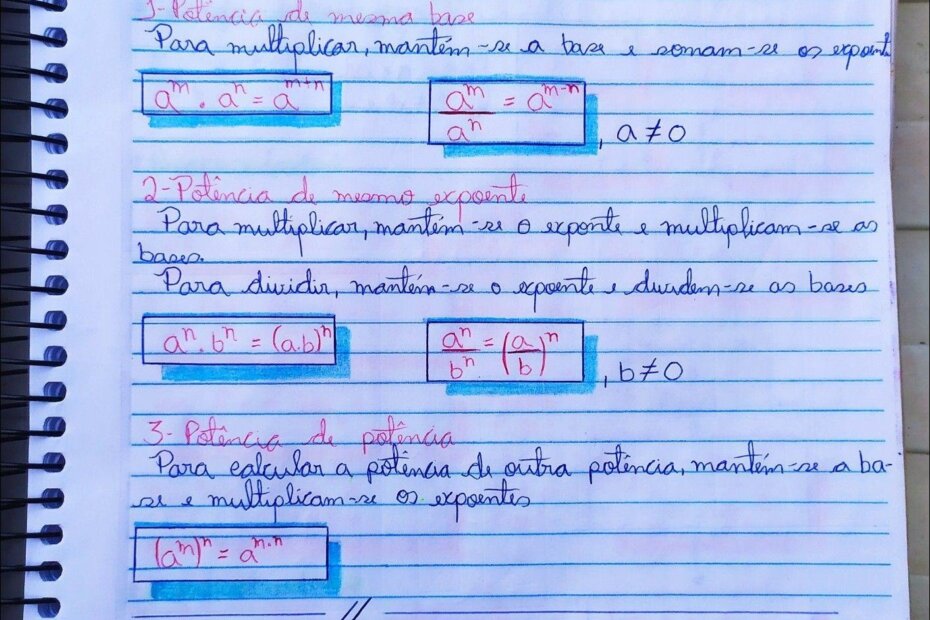 1-Potência de mesma base
Para multiplicar, mantém-se a base e somam-se os expoent
a^m . a^n = a^{m+n}
a^m/a^n = a^{m-n}, a ≠ 0
2-Potência de mesmo expoente
Para multiplicar, mantém-se o exponte e multiplicam-se as
bases.
Para dividir, mantém-se o expoente e dividem-se as bases
a^n . b^n = (a.b)^n
a^n/b^n = (a/b)^n, b ≠ 0
3-Potência de potência
Para calcular a potência de outra potência, mantém-se a ba-
se e multiplicam-se os expoentes
(a^m)^n = a^{m.n}